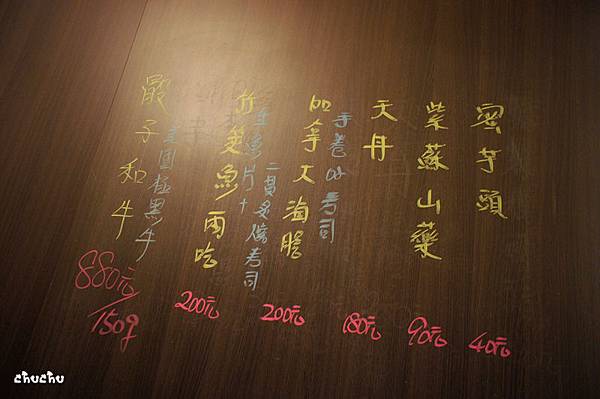 蜜芋頭
40元
紫蘇山藥
90元
天丹
180元
加拿大海膽
手卷or寿司
200元
竹筴魚兩吃
生魚片+
二貫炙燒寿司
200元
骰子和牛
美国極黑牛
880元/150g
chuchu